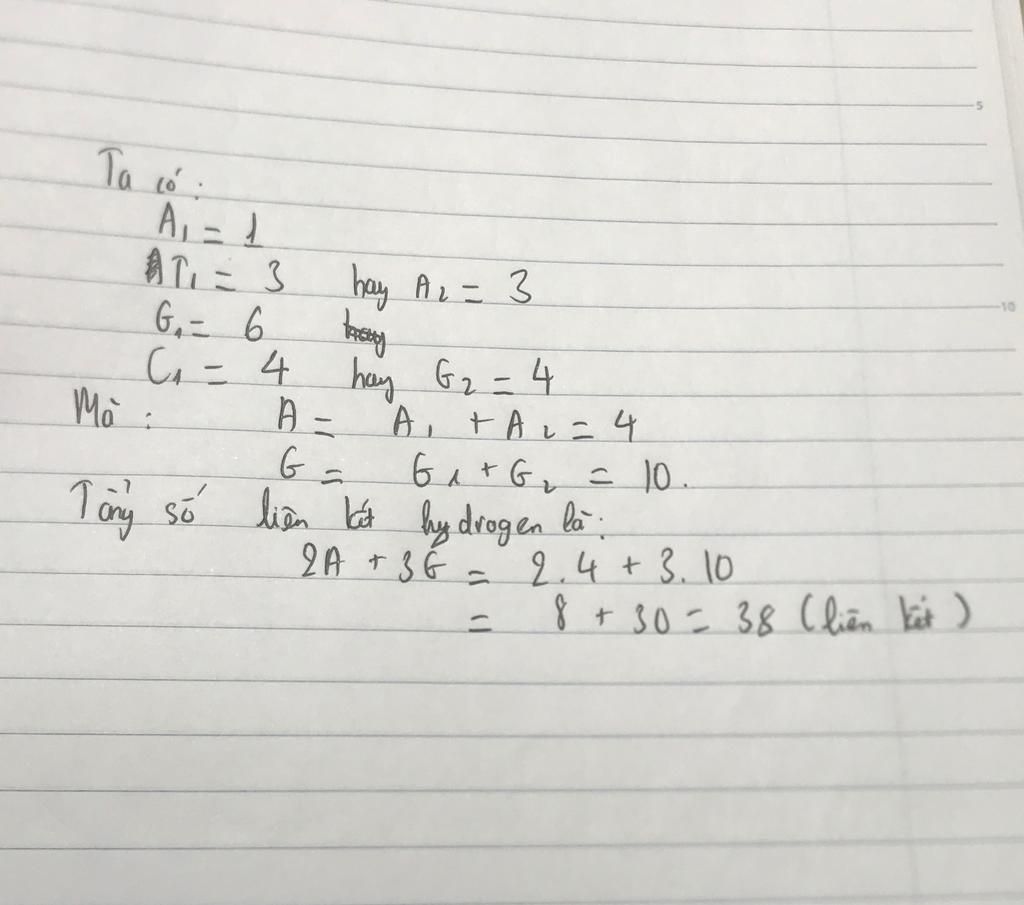 5
Ta có:
A₁ = 1
T₁ = 3 hay A₂ = 3
10
G₁ = 6
C₁ = 4 hay G₂ = 4
Mà: A = A₁ + A₂ = 4
G = G₁ + G₂ = 10.
Tổng số liên kết hydrogen là:
2A + 3G = 2.4 + 3.10
= 8 + 30 = 38 (liên kết)